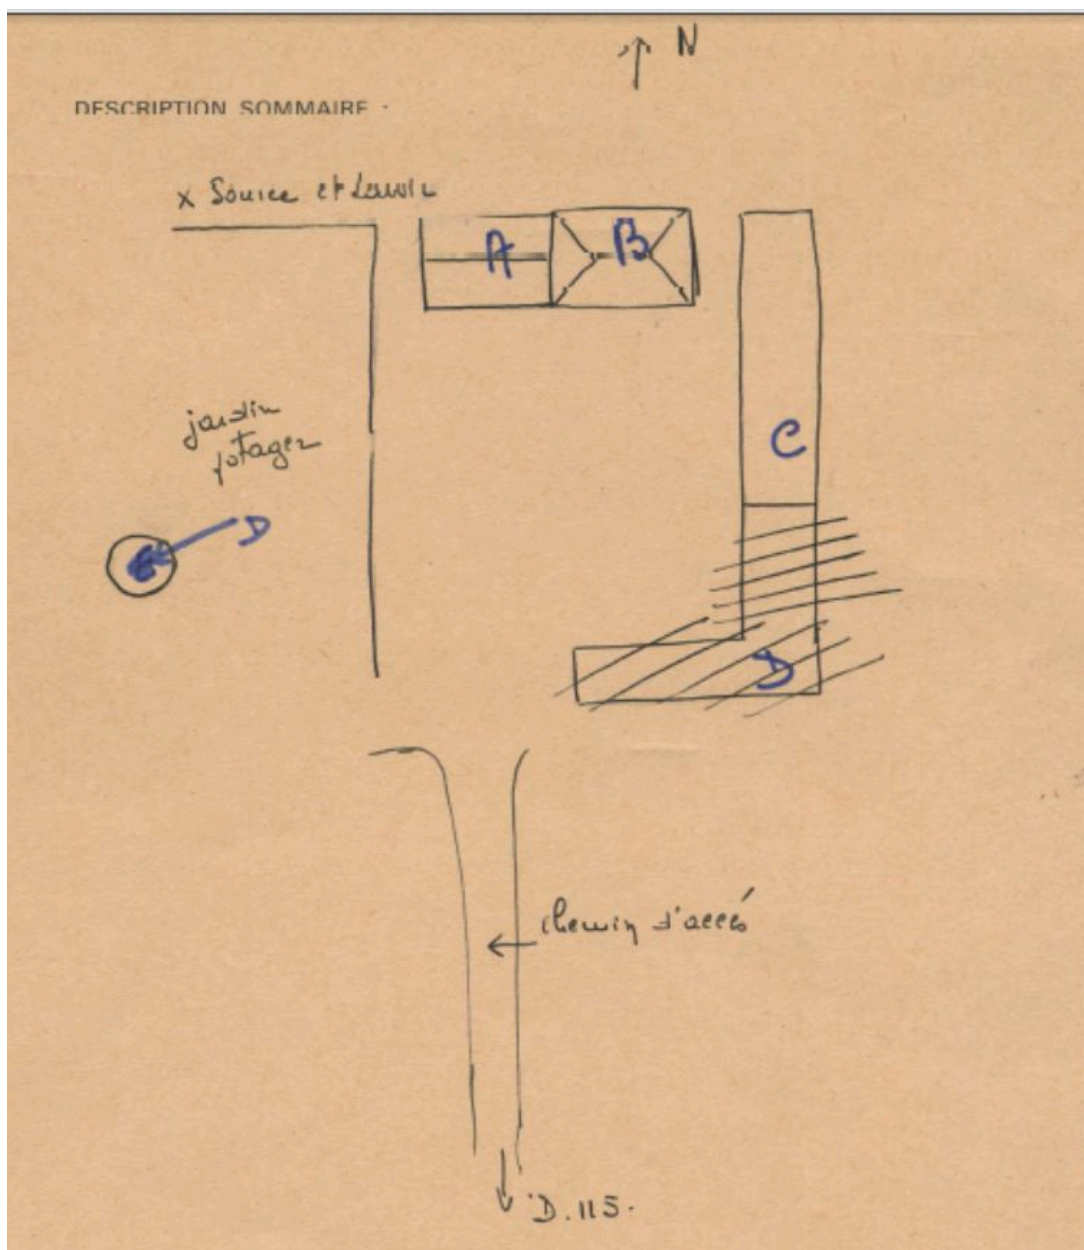 N
DESCRIPTION SOMMAIRE
x Source et Lavoir
A
B
C
jardin
potager
D
E
D
chemin d'accés
D.115.